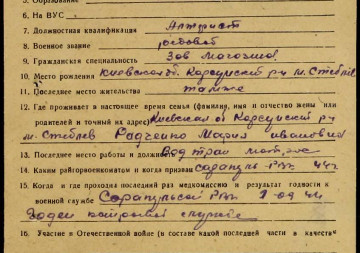 5. Образование
6. На ВУС
7. Должностная квалификация Артрист
8. Военное звание рядовой
9. Гражданская специальность Зав Магозиной
10. Место рождения Киевская об. Корсунский р-н М. Стеблев
11. Последнее место жительства там же
12. Где проживает в настоящее время семья (фамилия, имя и отчество жены или
родителей и точный их адрес) Киевская об Корсунский р-н
м. Стеблев Радченко Мария ивановна
13. Последнее место работы и должность
14. Каким райгорвоенкоматом и когда призван Сарапул РВК 44г
15. Когда и где проходил последний раз медкомиссию и результат годности к
военной службе Сарапульский РВК 1944
годен к строевой службе
16. Участие в Отечественной войне (в составе какой последней части в качеств